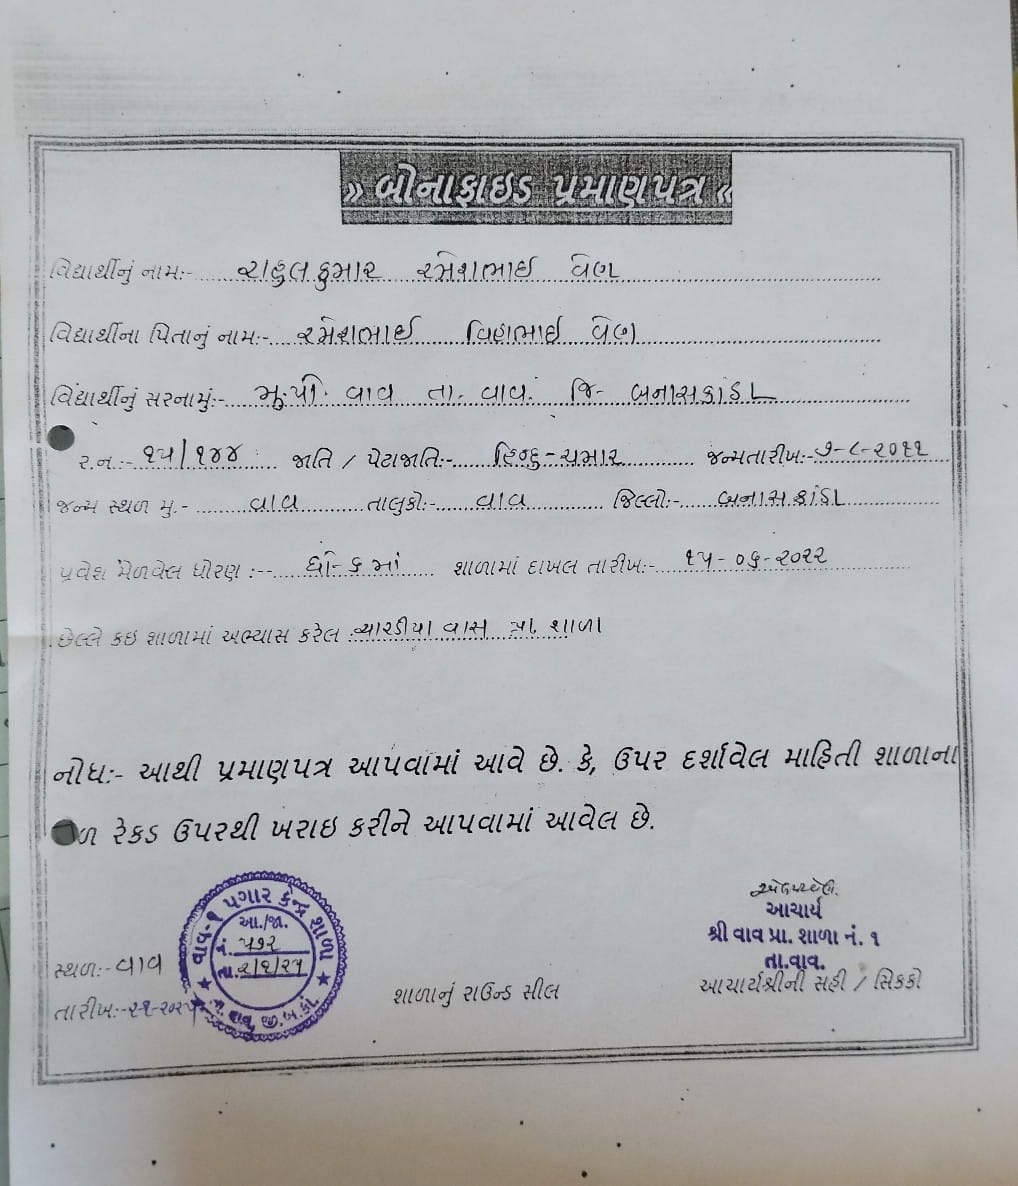 » બોનાફાઇડ પ્રમાણપત્ર «
વિદ્યાર્થીનું નામ:- રાહુલકુમાર રમેશભાઈ વેણ
વિદ્યાર્થીના પિતાનું નામ:- રમેશભાઈ વિહાભાઈ વેણ
વિદ્યાર્થીનું સરનામું:- મુ.પો. વાવ તા. વાવ. જિ- બનાસકાંઠા
ર.ન.:- ૧૫/૧૪૪ જાતિ / પેટાજાતિ:- હિન્દુ-ચમાર જન્મતારીખ:-
જન્મ સ્થળ મુ.- વાવ તાલુકો:- વાવ જિલ્લો:- બનાસકાંઠા
પ્રવેશ મેળવેલ ધોરણ :-- ધો-૬માં શાળામાં દાખલ તારીખ:- ૧૫-૦૬-૨૦૨૨
છેલ્લે કઇ શાળામાં અભ્યાસ કરેલ : ચારડીયા વાસ પ્રા. શાળા
નોધ:- આથી પ્રમાણપત્ર આપવામાં આવે છે. કે, ઉપર દર્શાવેલ માહિતી શાળાના
રેકડ ઉપરથી ખરાઇ કરીને આપવામાં આવેલ છે.
વાવ-૧ પગાર કેન્દ્ર શાળા
આ./જા.
નં. ૫૭૨
તા. ૨/૧/૨૫
વાવ જી.બ.કાં.
આચાર્ય
શ્રી વાવ પ્રા. શાળા નં. ૧
તા.વાવ.
સ્થળ:- વાવ
તારીખ:-
શાળાનું રાઉન્ડ સીલ
આચાર્યશ્રીની સહી / સિકકો